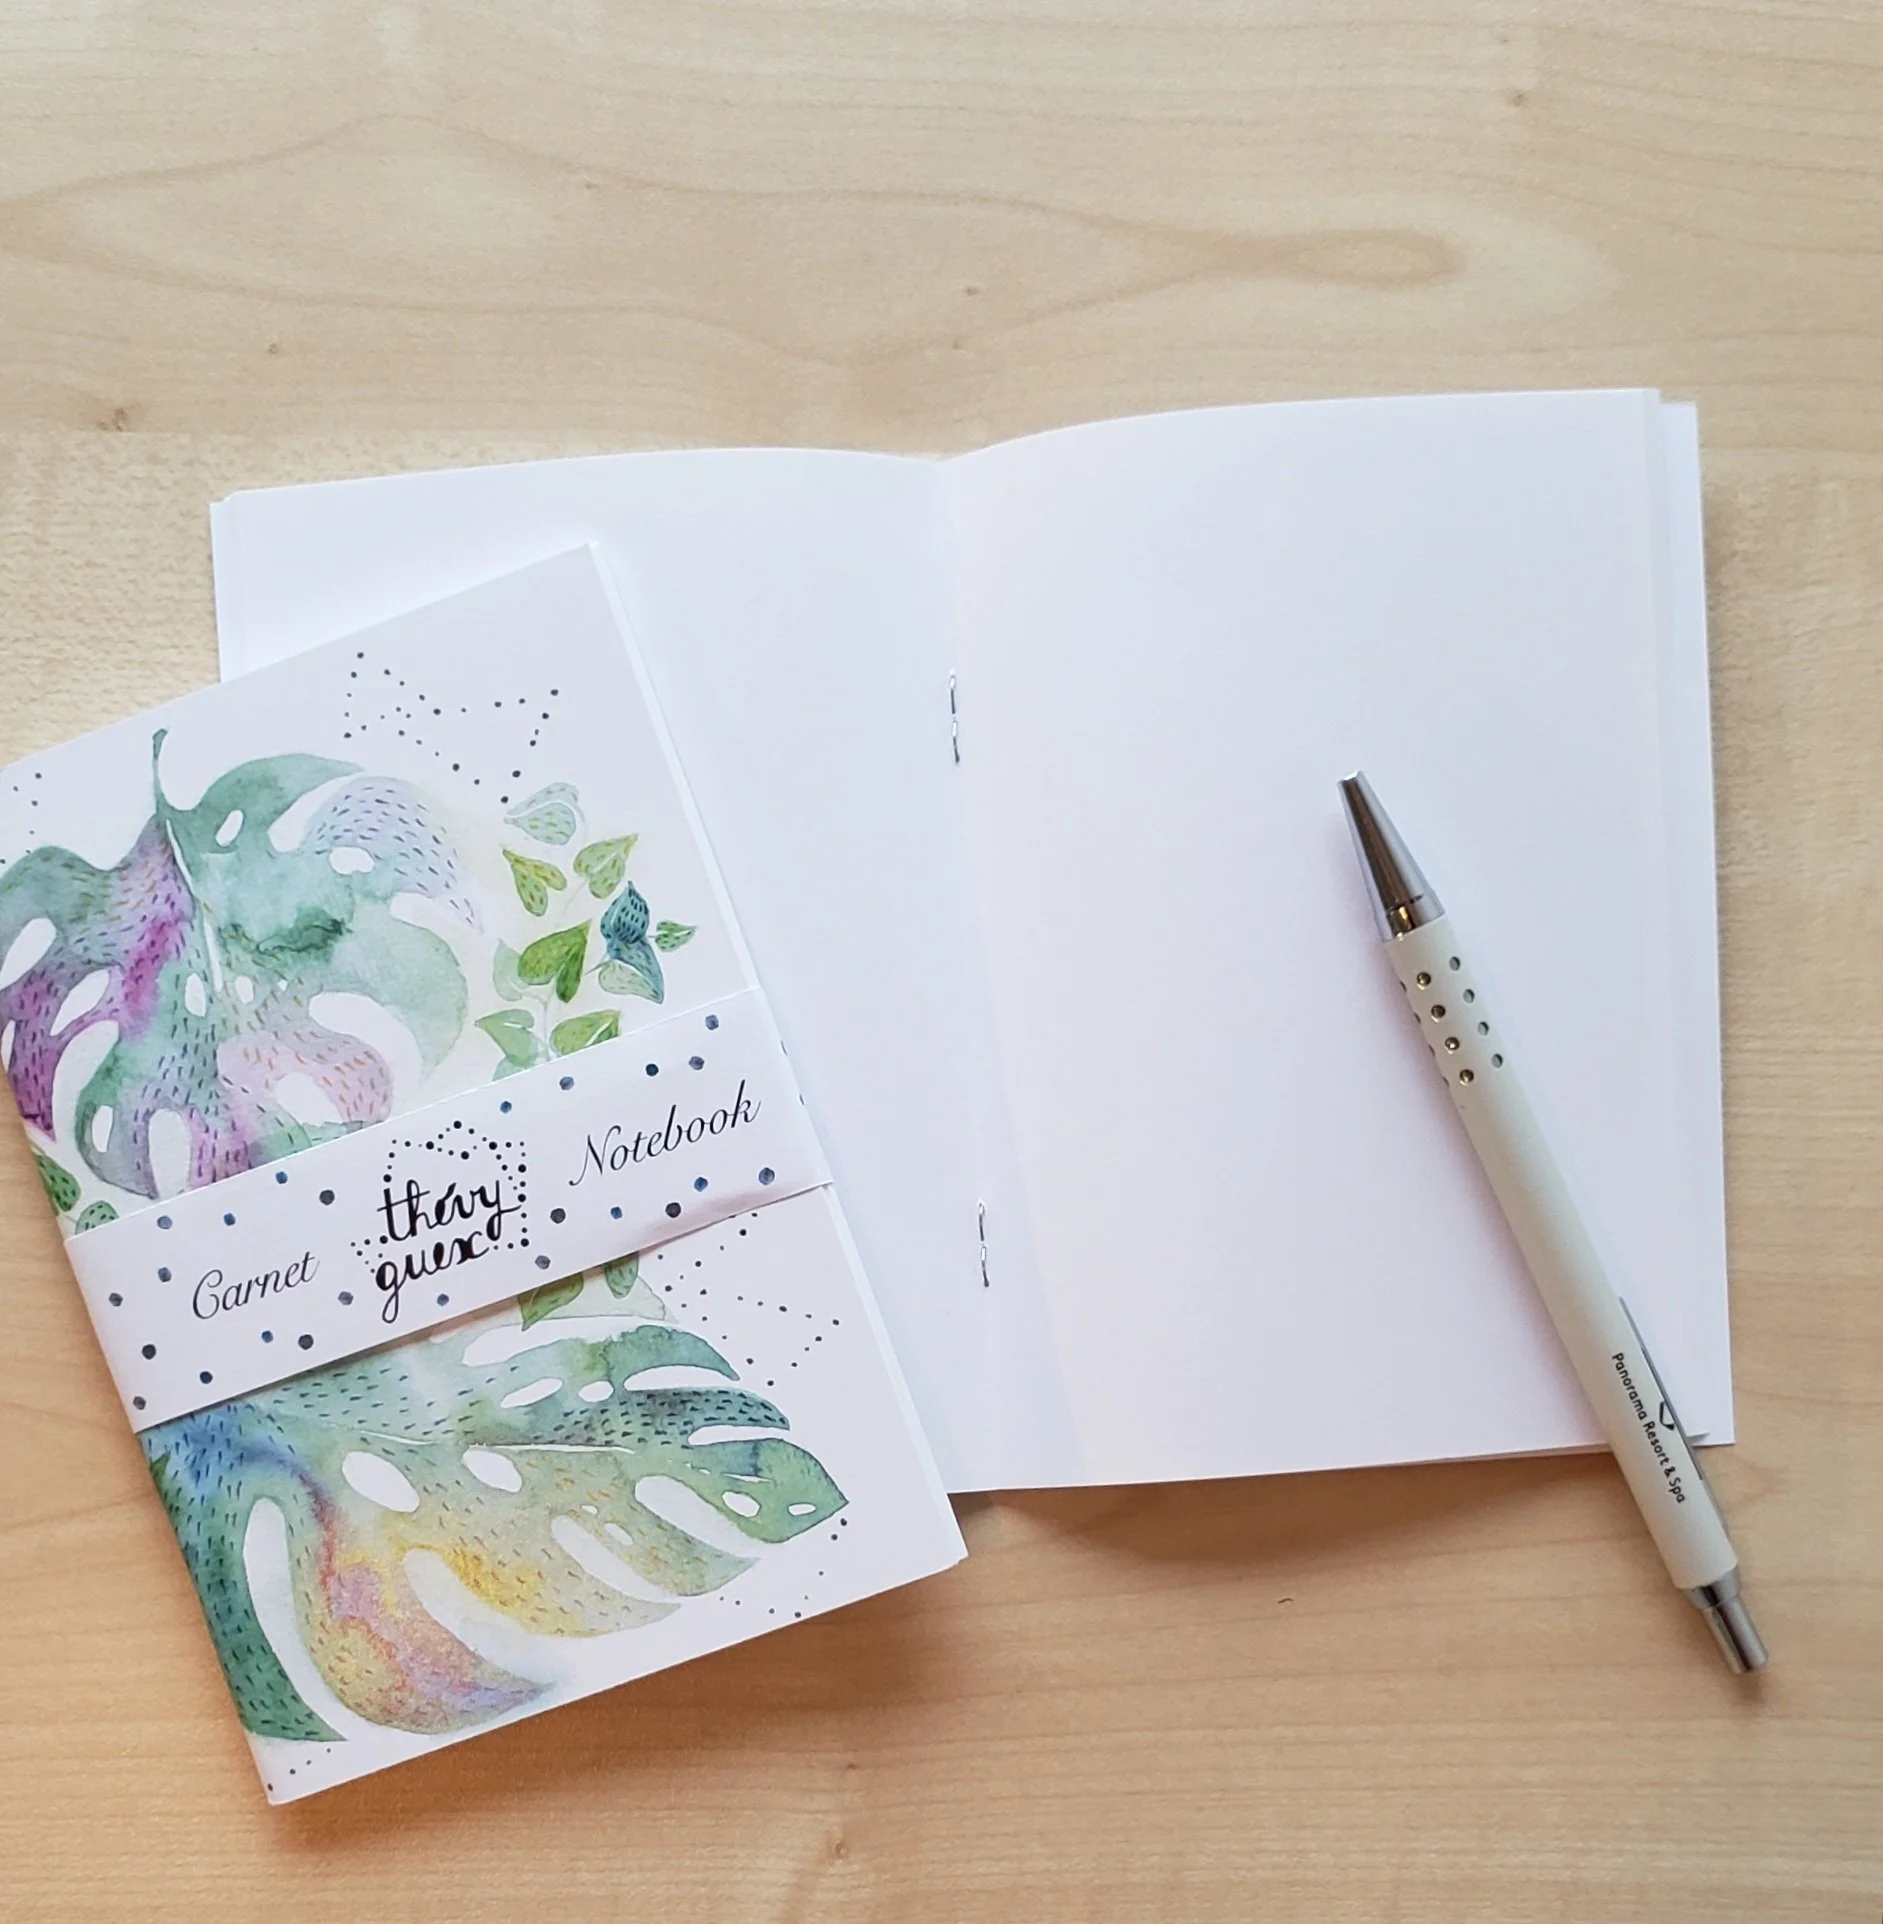 Carnet
thévy
guex
Notebook
Panorama Resort & Spa